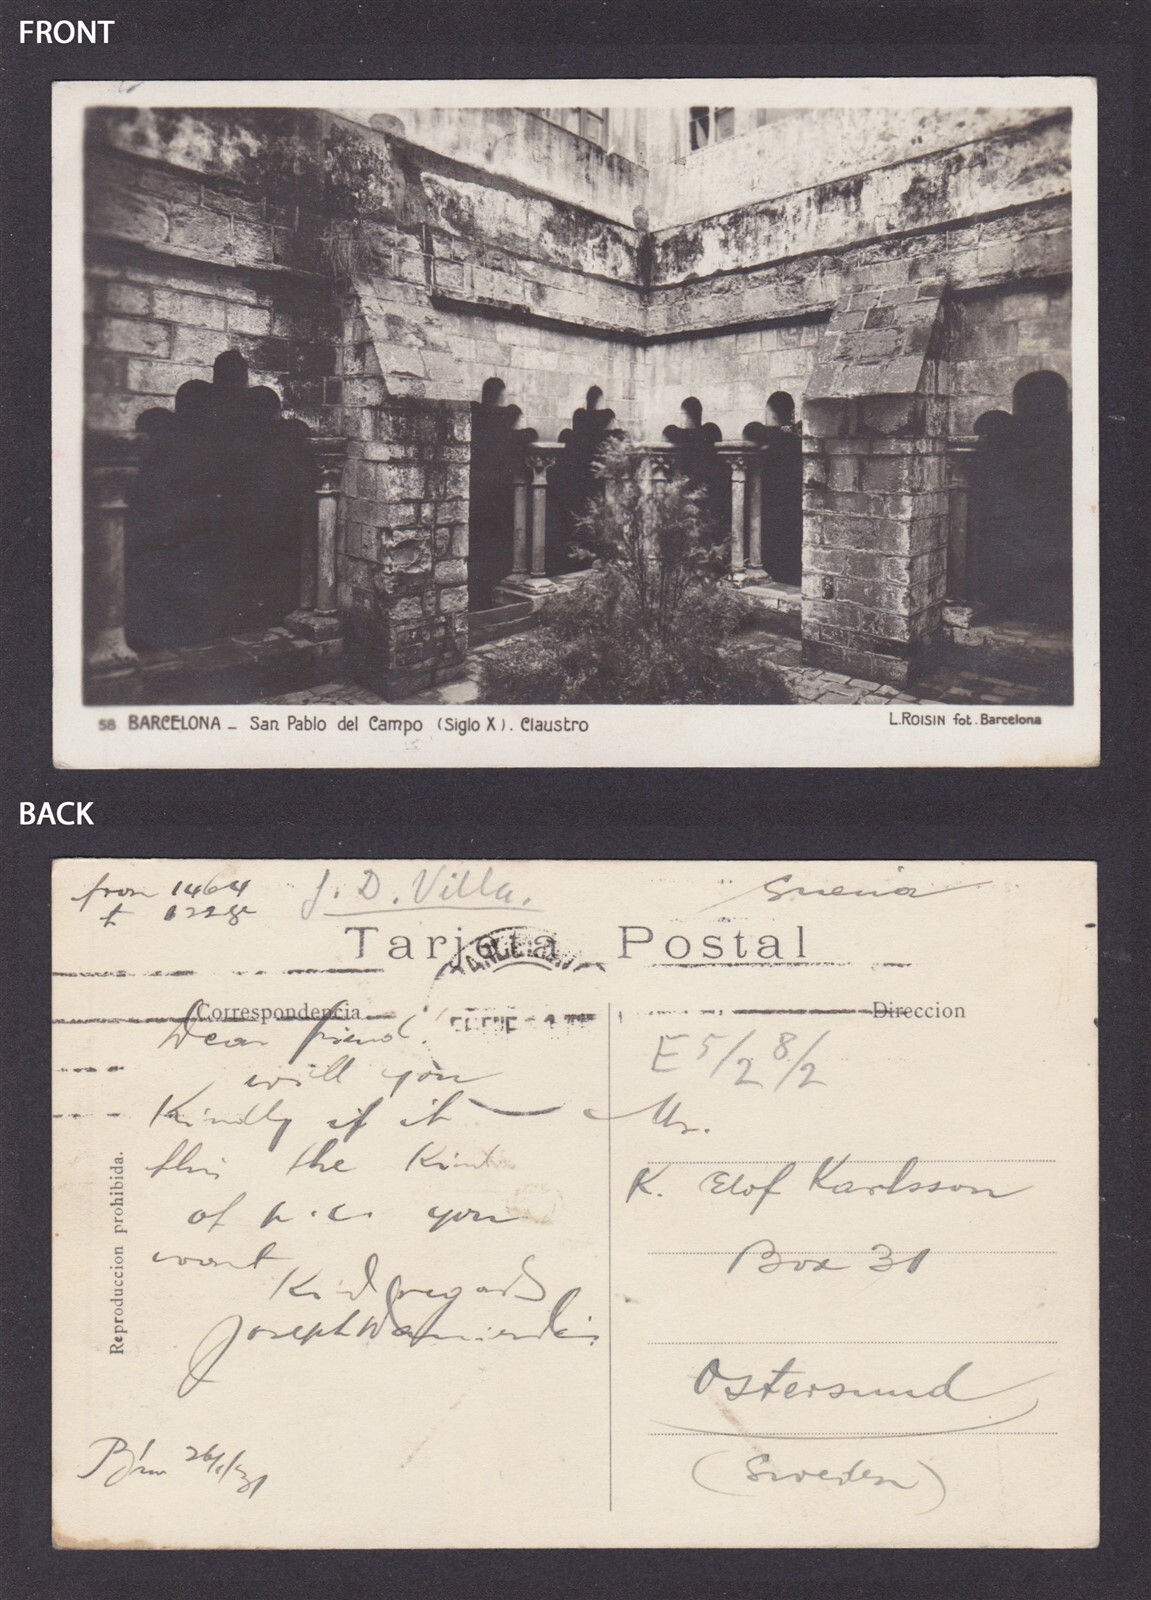 FRONT
58 BARCELONA - San Pablo del Campo (Siglo X). Claustro
L. ROISIN fot. Barcelona
BACK
from 1464
J. D. Villa.
Suecia
Tarjeta Postal
Correspondencia
Direccion
Dear friend!
will you
Kindly if it
this the Kind
of p.c. you
want
Kind regards
Joseph
E 5/2 8/2
Mr.
K. Elof Karlsson
Box 31
Ostersund
(Sweden)
Reproduccion prohibida.
26/1/31